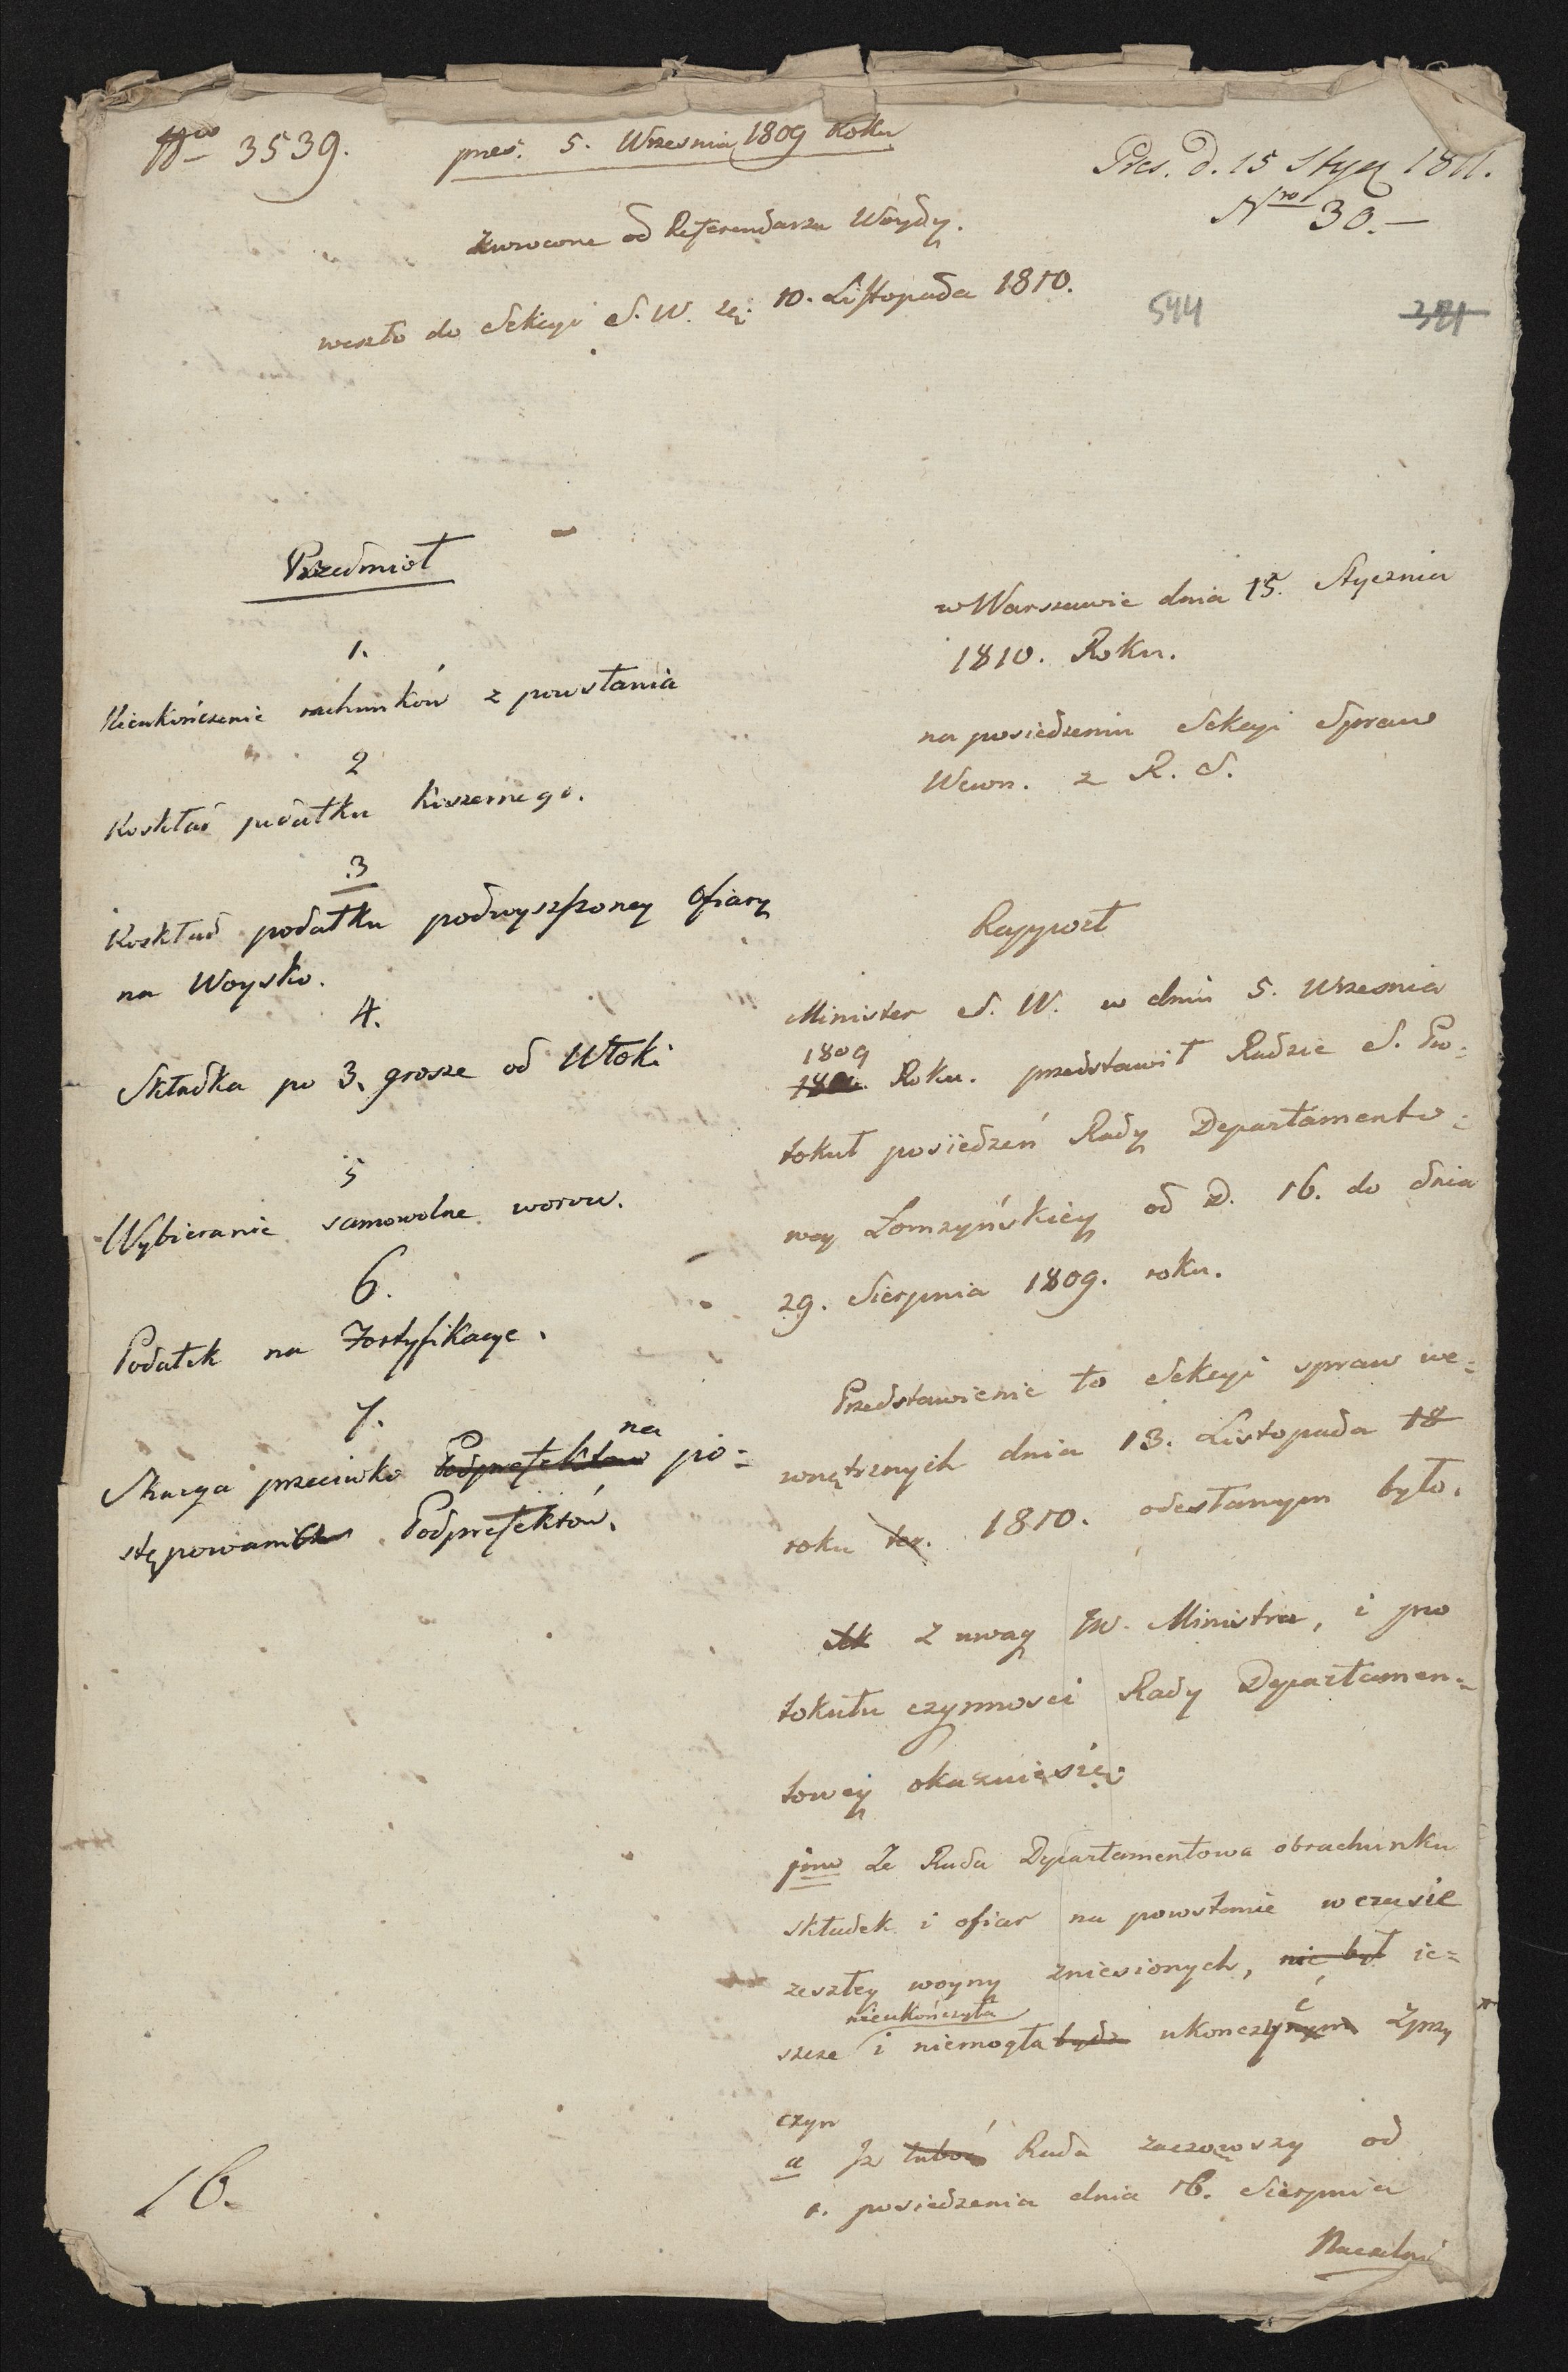 Nro 3539.
pres. 5. Wrzesnia 1809 Roku
Pres. d. 15 Stycz 1811.
Nro 30.-
zwrocone od Referendarza Woydy.
weszło do Sekcyi S. W. 10. Listopada 1810.
544
Przedmiot
1.
Nieukończenie rachunków z powstania
2
Rozkład podatku liwerunego.
3
Rozkład podatku podwyszszoney Ofiary
na Woysko.
4.
Składka po 3. grosze od Włoki
5
Wybieranie samowolne worow.
6.
Podatek na Fortyfikacye.
7.
Skarga przeciwko Podprefektow na po=
stępowanie Podprefektów.
16.
w Warszawie dnia 15. Stycznia
1810. Roku.
na posiedzeniu Sekcyi Spraw
Wewn. z R. S.
Rapport
Minister S. W. w dniu 5. Wrzesnia
1809
Roku. przedstawił Radzie S. Pro=
tokuł posiedzeń Rady Departamento=
wey Łomzyńskiey od D. 16. do dnia
29. Sierpnia 1809. roku.
Przedstawienie to Sekcyi spraw we=
wnętrznych dnia 13. Listopada 18
roku tez. 1810. odesłanym było.
Z uwag JW. Ministra, i pro
tokułu czynnosci Rady Departamen=
towey okazuie się
jmo Ze Rada Departamentowa obrachunku
składek i ofiar na powstanie w czasie
zeszłey woyny zniesionych, nie był ie=
nieukończyła
szcze i niemogła bydz ukonczyć Z przy
czyn
a Iz lubo Rada zacząwszy od
1. posiedzenia dnia 16. Sierpnia